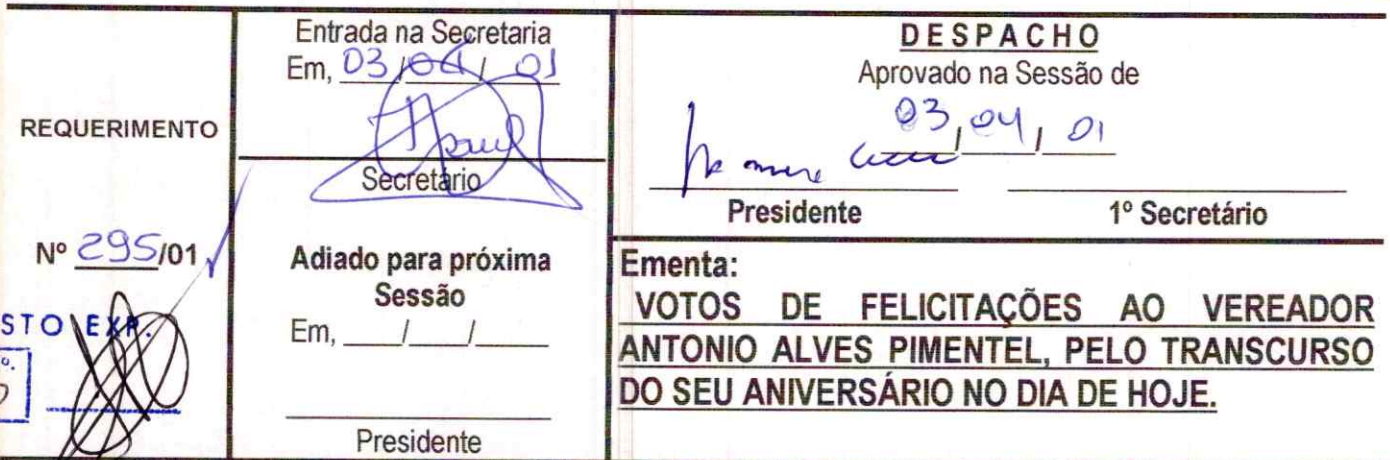 REQUERIMENTO
Nº 295/01
STO EXP.
Entrada na Secretaria
Em, 03/04/01
Secretário
Adiado para próxima
Sessão
Em, ____/____/_____
Presidente
DESPACHO
Aprovado na Sessão de
03/04/01
Presidente 1º Secretário
Ementa:
VOTOS DE FELICITAÇÕES AO VEREADOR
ANTONIO ALVES PIMENTEL, PELO TRANSCURSO
DO SEU ANIVERSÁRIO NO DIA DE HOJE.